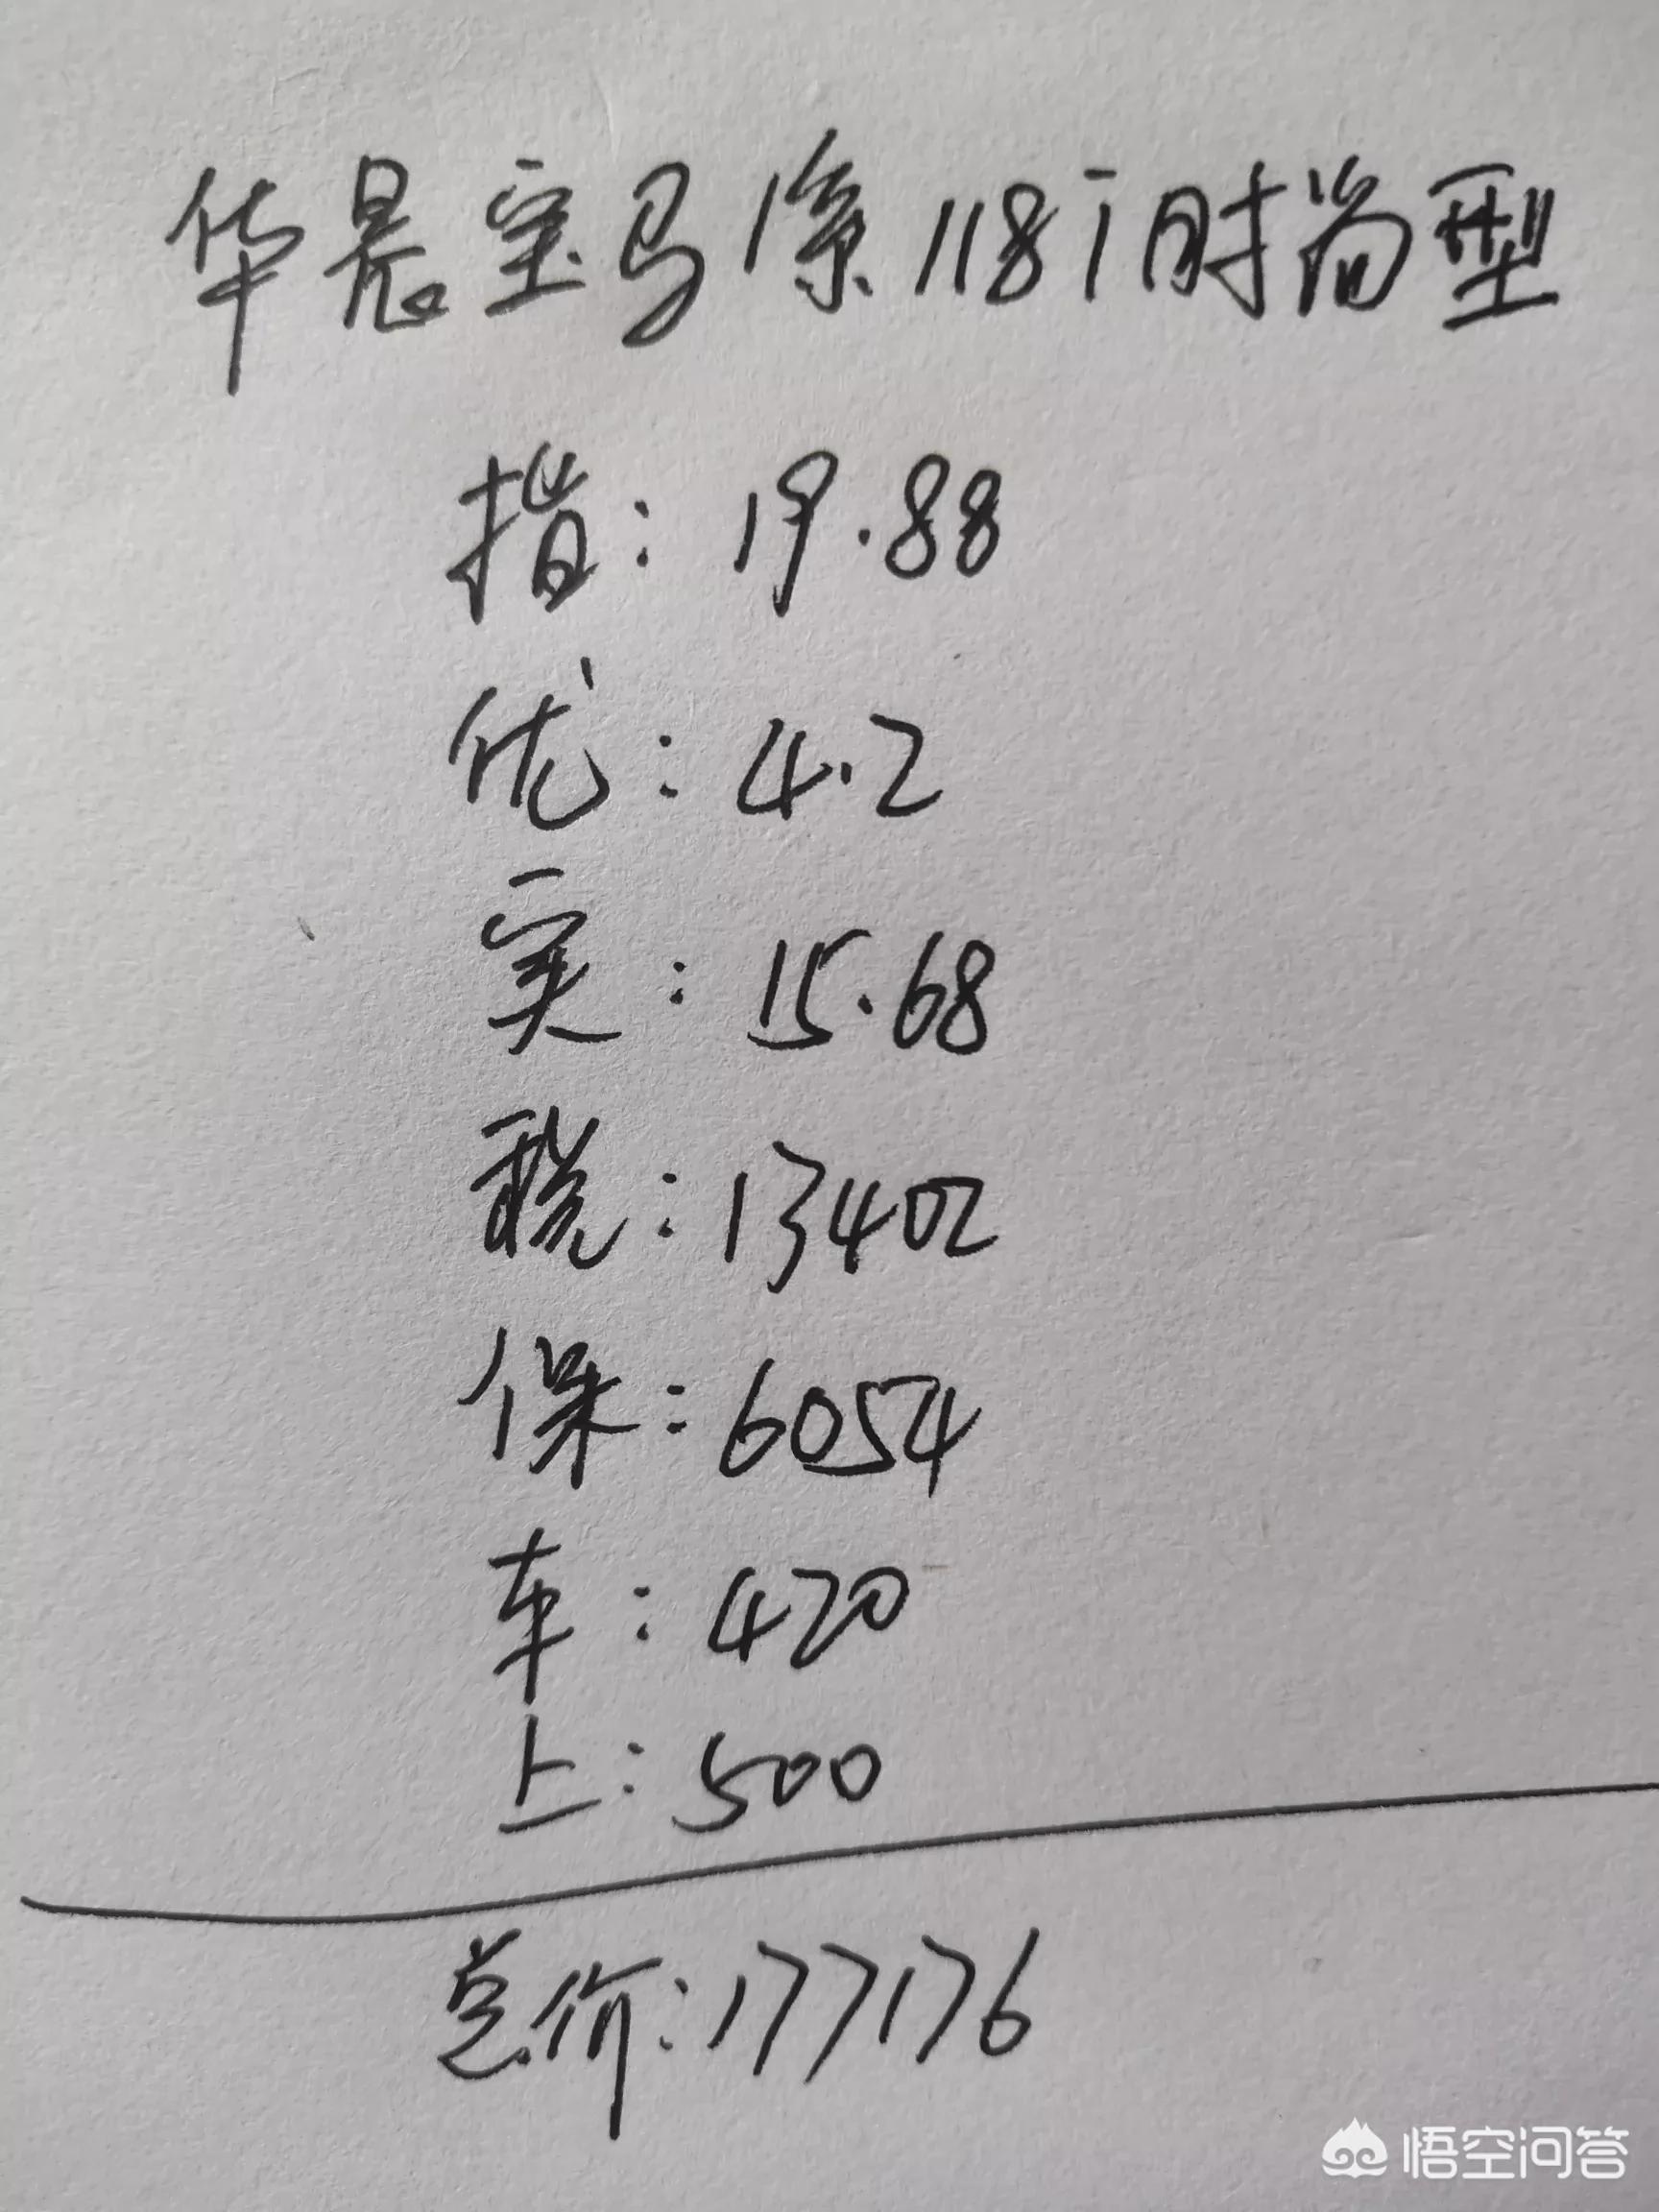 华晨宝马1系118i时尚型
指：19.88
优：4.2
实：15.68
税：13402
保：6054
车：420
上：500
总价：177176
悟空问答